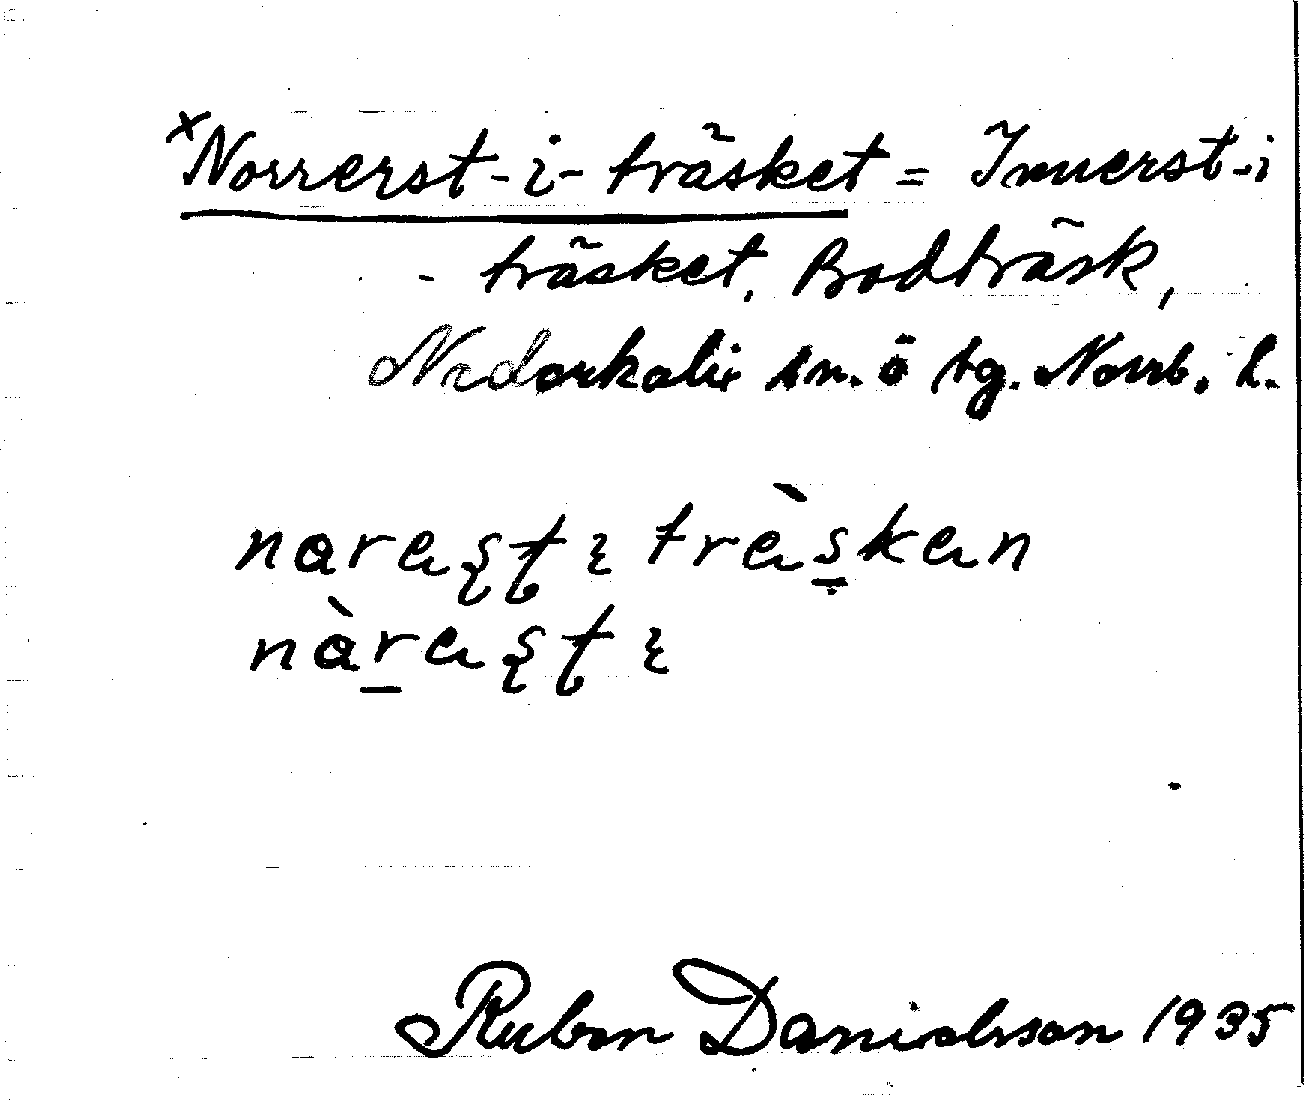 ×Norrerst-i-träsket = Innerst-i
- träsket, Bodträsk,
Nederkalix sn. ö tg. Norrb. l.
narest i träsken
nàrest i
Ruben Danielsson 1935